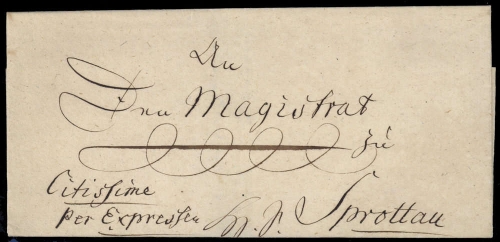 An
Den Magistrat
zu
Citissime
per Expressen Sprottau